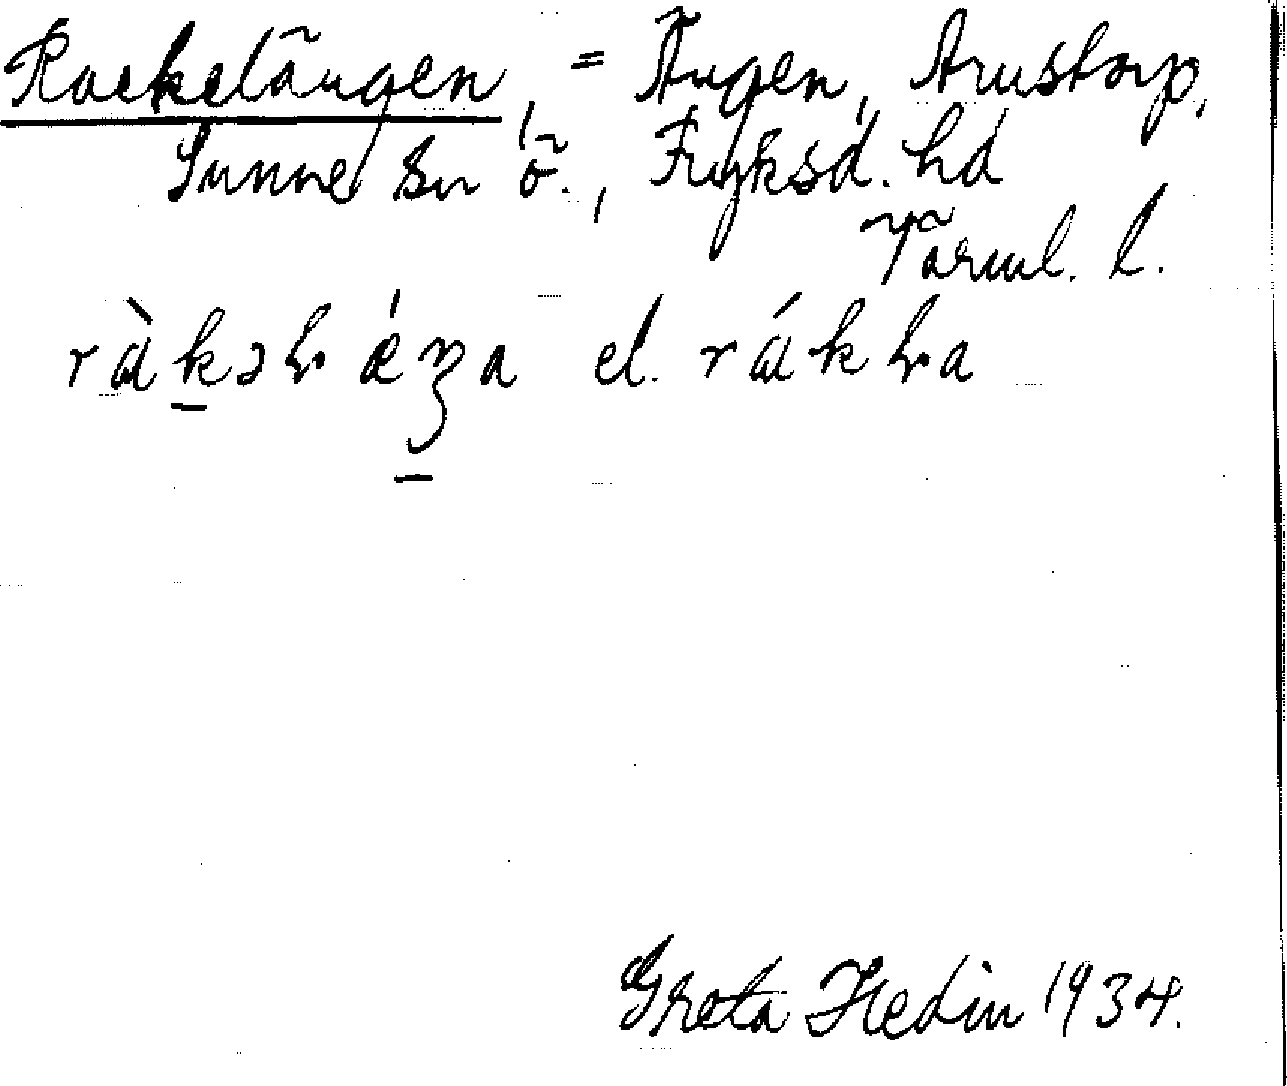 Rackelängen, = Ängen, Arustorp,
Sunne sn ö., Fryksd. hd
Värml. l.
ràkəl ǽŋa el. rákla
Greta Hedin 1934.